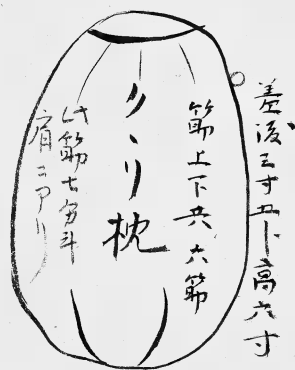 差渡三寸五卜高六寸
筋上下共六筋
クヽリ枕
此筋七分斗
肩ニアリ